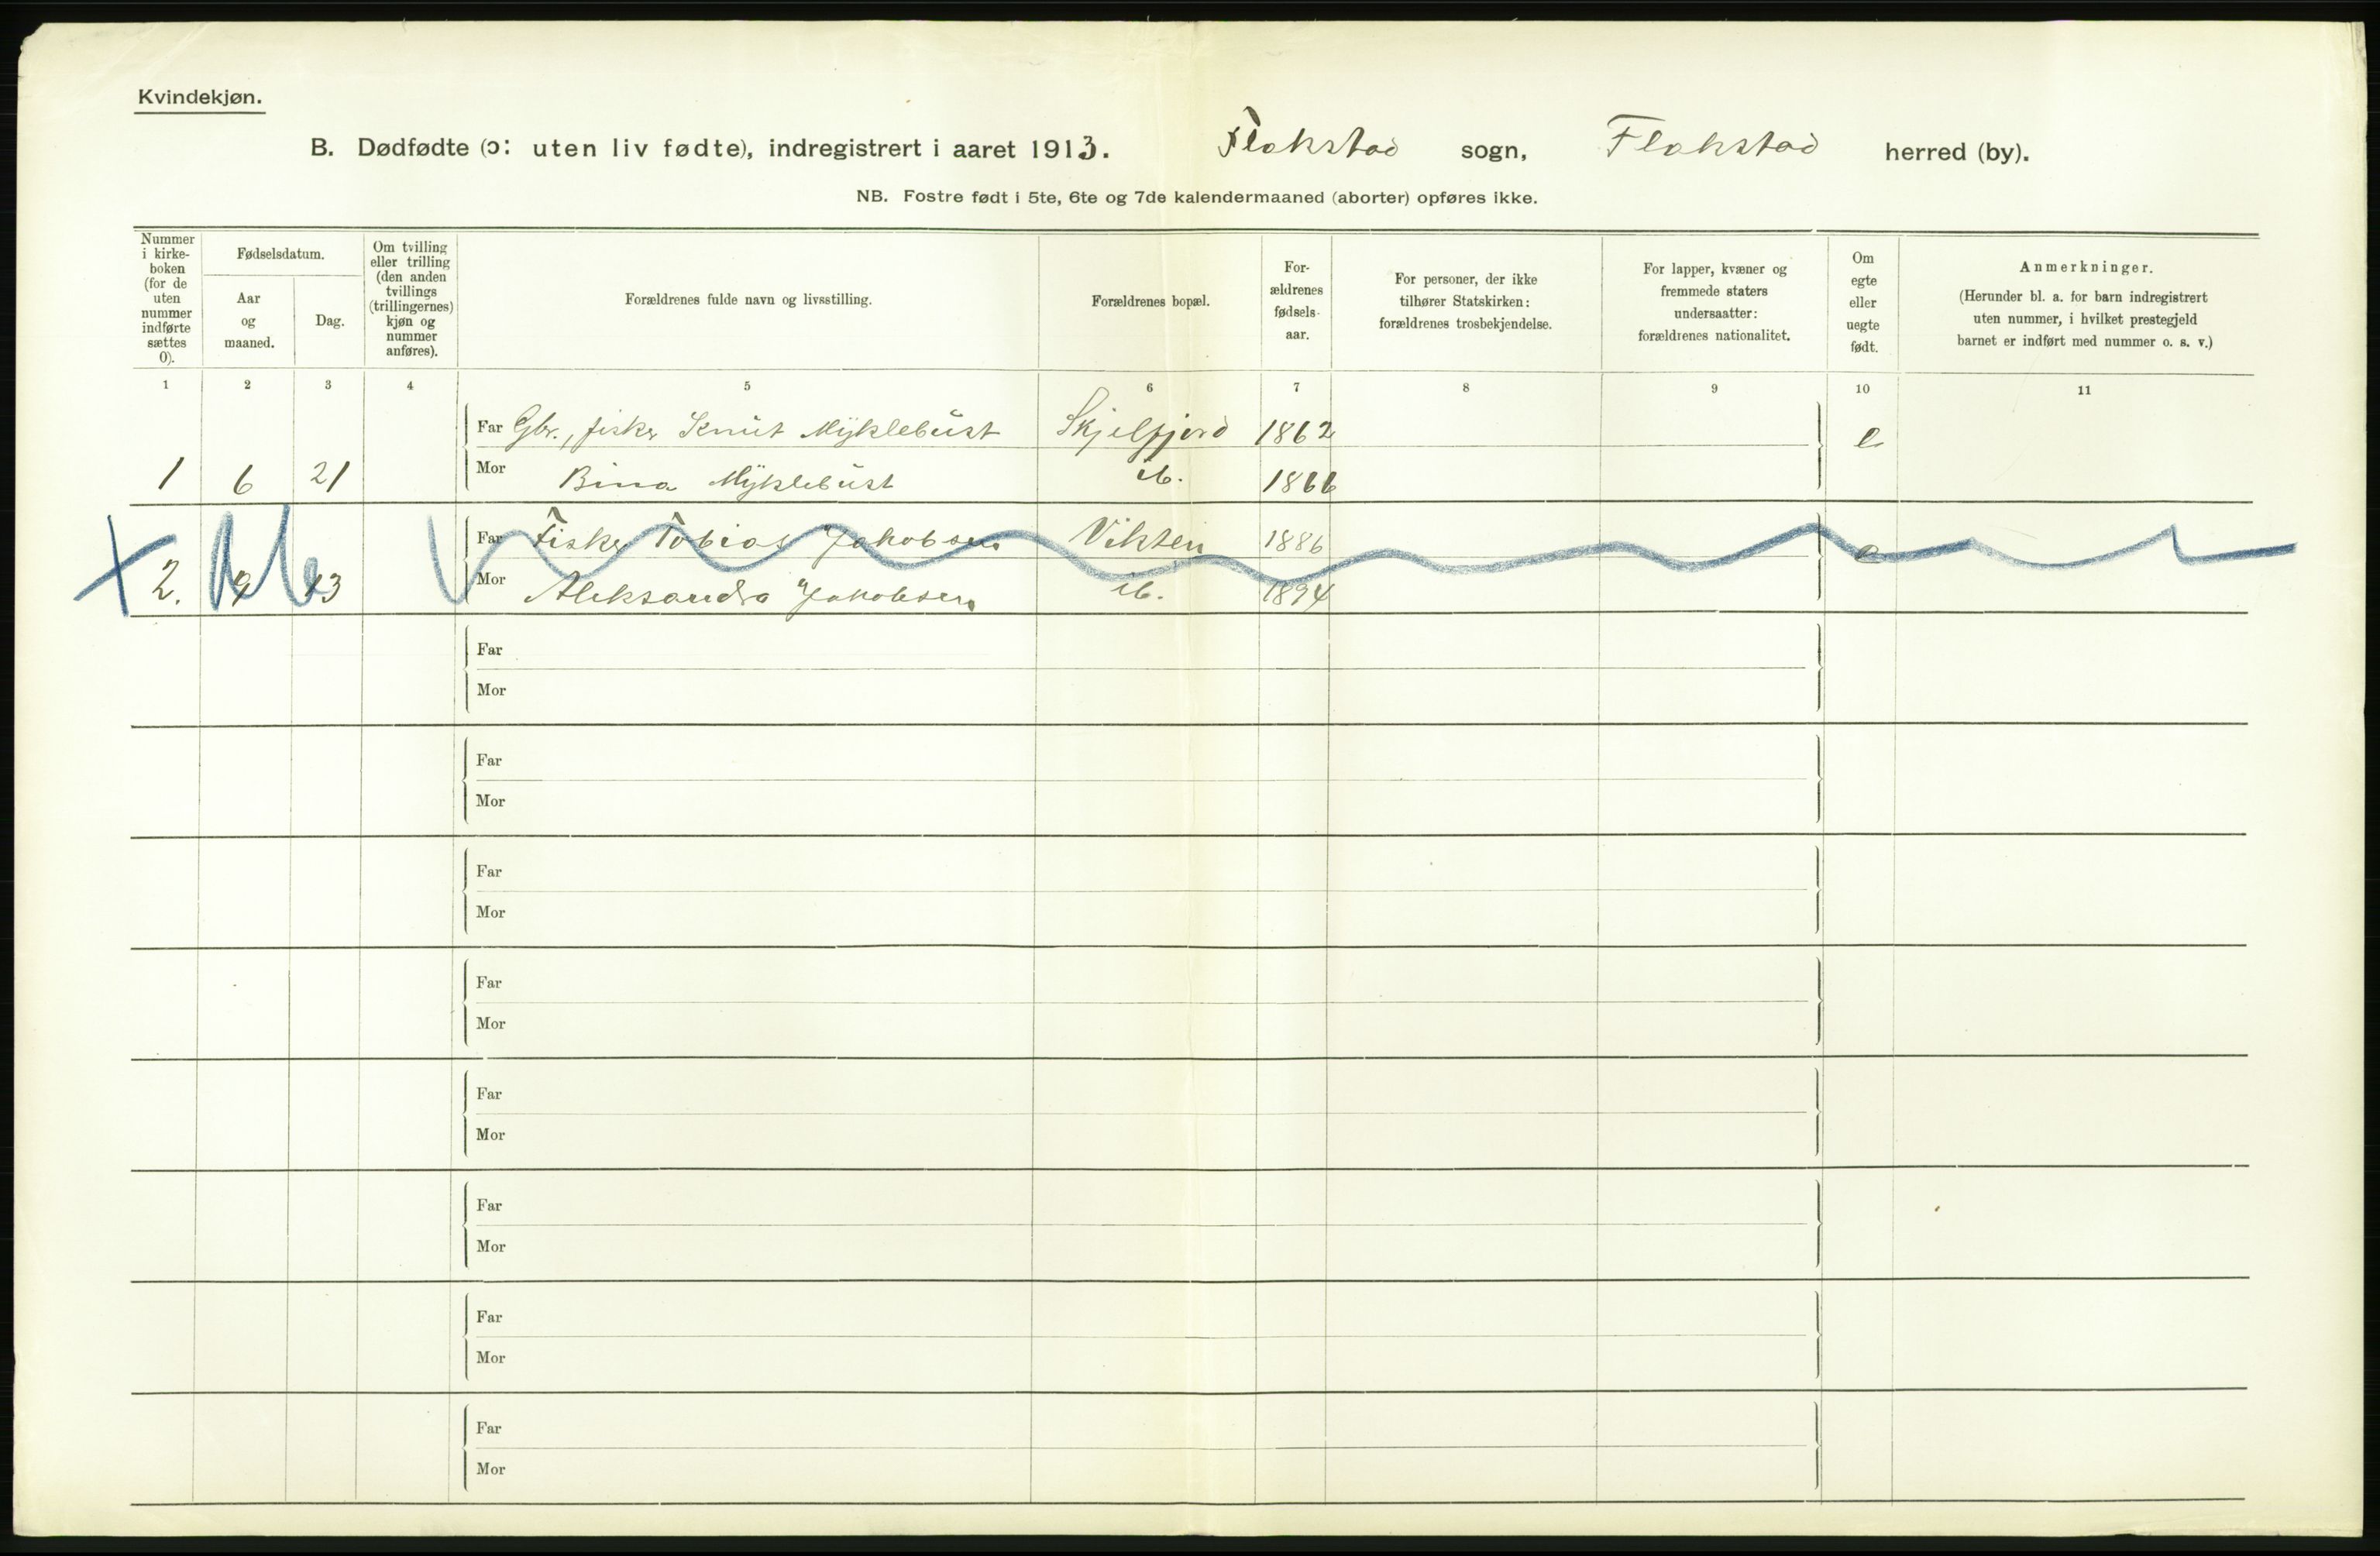 Kvindekjøn.
B. Dødfødte (ɔ: uten liv fødte), indregistrert i aaret 1913. Flakstad sogn, Flakstad herred (by).
NB. Fostre født i 5te, 6te og 7de kalendermaaned (aborter) opføres ikke.
Nummer i kirke-boken (for de uten nummer indførte sættes 0).
Fødselsdatum.
Aar og maaned.
Dag.
Om tvilling eller trilling (den anden tvillings (trillingernes) kjøn og nummer anføres).
Forældrenes fulde navn og livsstilling.
Forældrenes bopæl.
For-ældrenes fødsels-aar.
For personer, der ikke tilhører Statskirken: forældrenes trosbekjendelse.
For lapper, kvæner og fremmede staters undersaatter: forældrenes nationalitet.
Om egte eller uegte født.
Anmerkninger.
(Herunder bl. a. for barn indregistrert uten nummer, i hvilket prestegjeld barnet er indført med nummer o. s. v.)
1 2 3 4 5 6 7 8 9 10 11
Far Gbr., fisker Knut Myklebust Skjelfjord 1862 e
1 6 21 Mor Bina Myklebust ib. 1866
Far Fisker Tobias Jakobsen Vikten 1886 e
2. 9 13 Mor Aleksandra Jakobsen ib. 1894
Far
Mor
Far
Mor
Far
Mor
Far
Mor
Far
Mor
Far
Mor
Far
Mor
Far
Mor